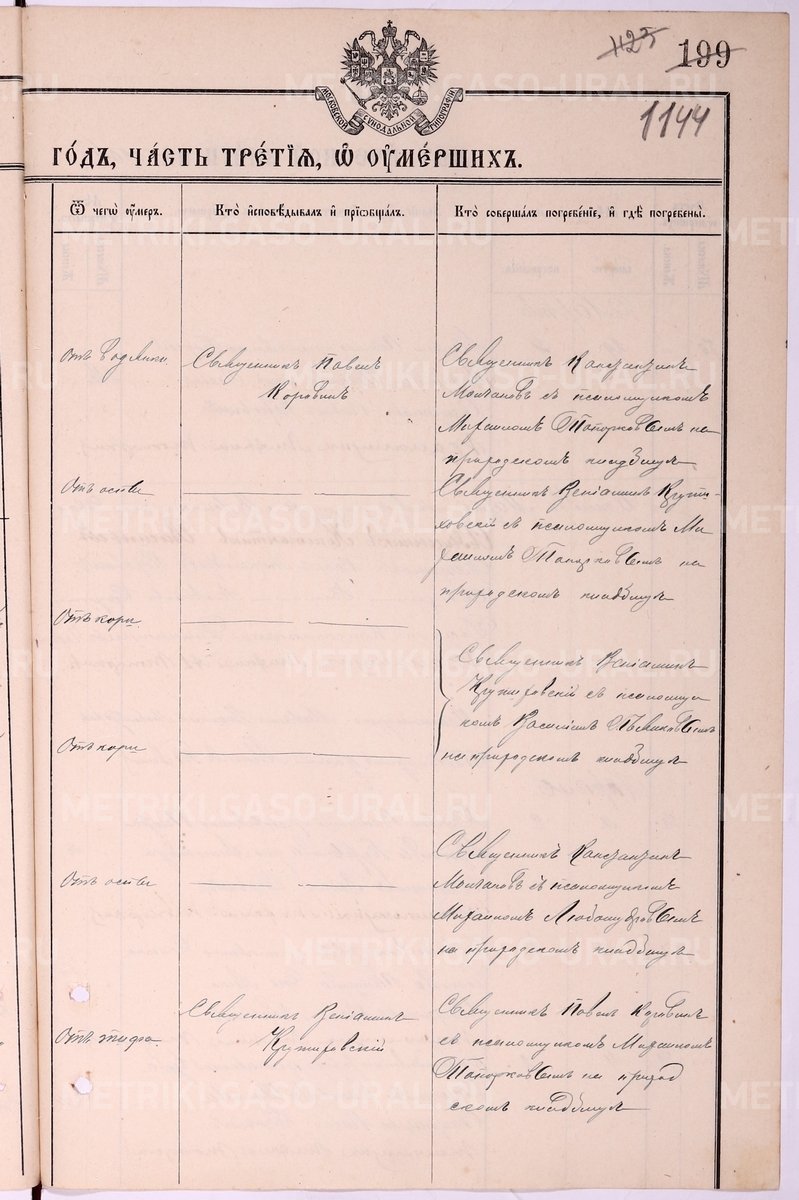 1125
199
МОСКОВСКОЙ СѴНОДАЛЬНОЙ ТИПОГРАФІИ
1144
ГО́ДЪ, ЧА́СТЬ ТРЕ́ТІѦ, Ѽ ОУ҆МЕ́РШИХЪ.
Ѿ чегѡ̀ оу҆́меръ.
Кто̀ и҆сповѣ́дывалъ и҆ прїѡбща́лъ.
Кто̀ соверша́лъ погребе́нїе, и҆ гдѣ̀ погребены̀.
Отъ водянки
Священникъ Павелъ
Коровинъ
Священникъ Константинъ
Молчановъ съ псаломщикомъ
Михаиломъ Топорковымъ на
приходскомъ кладбищѣ
Отъ оспы
Священникъ Веніаминъ
съ псаломщикомъ Ми-
хаиломъ Топорковымъ на
приходскомъ кладбищѣ
Отъ кори
Священникъ Веніаминъ
съ псаломщи-
комъ Василіемъ
на приходскомъ кладбищѣ
Отъ кори
Отъ оспы
Священникъ Константинъ
Молчановъ съ псаломщикомъ
Михаиломъ Любомудровымъ
на приходскомъ кладбищѣ
Отъ тифа
Священникъ Веніаминъ
Священникъ Павелъ Коровинъ
съ псаломщикомъ Михаиломъ
Топорковымъ на приход
скомъ кладбищѣ
METRIKI.GASO-URAL.RU